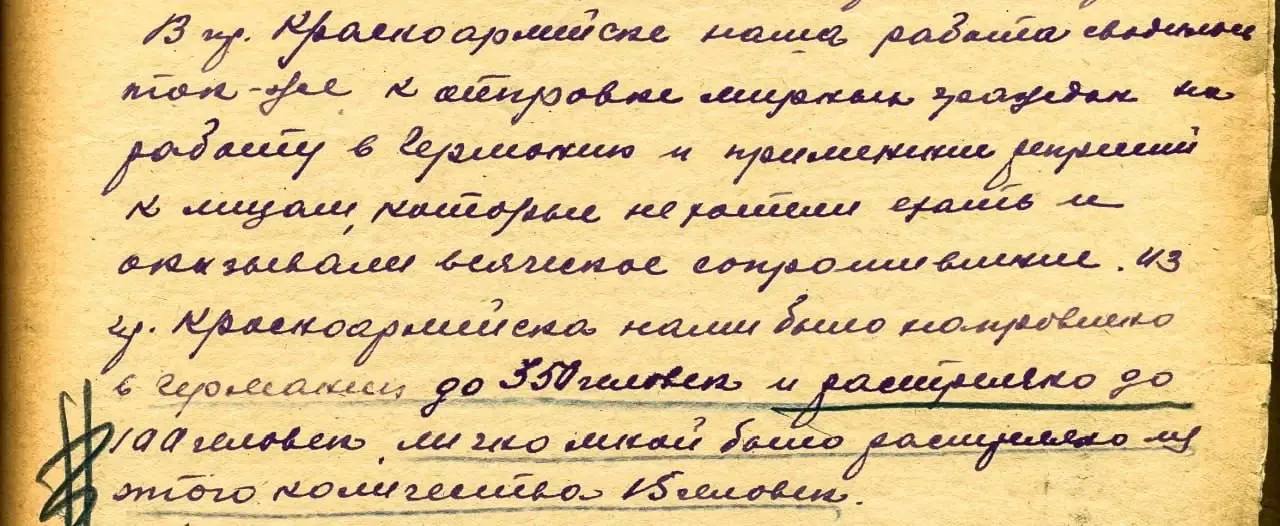 В гр. Красноармейске наша работа сводилась
так-же к отправке мирных граждан на
работу в Германию и применении репрессий
к лицам, которые не хотели ехать и
оказывали всяческое сопротивление. Из
гр. Красноармейска нами было направлено
в Германию до 350 человек и расстреляно до
100 человек, лично мной было расстреляно из
этого количества 15 человек.